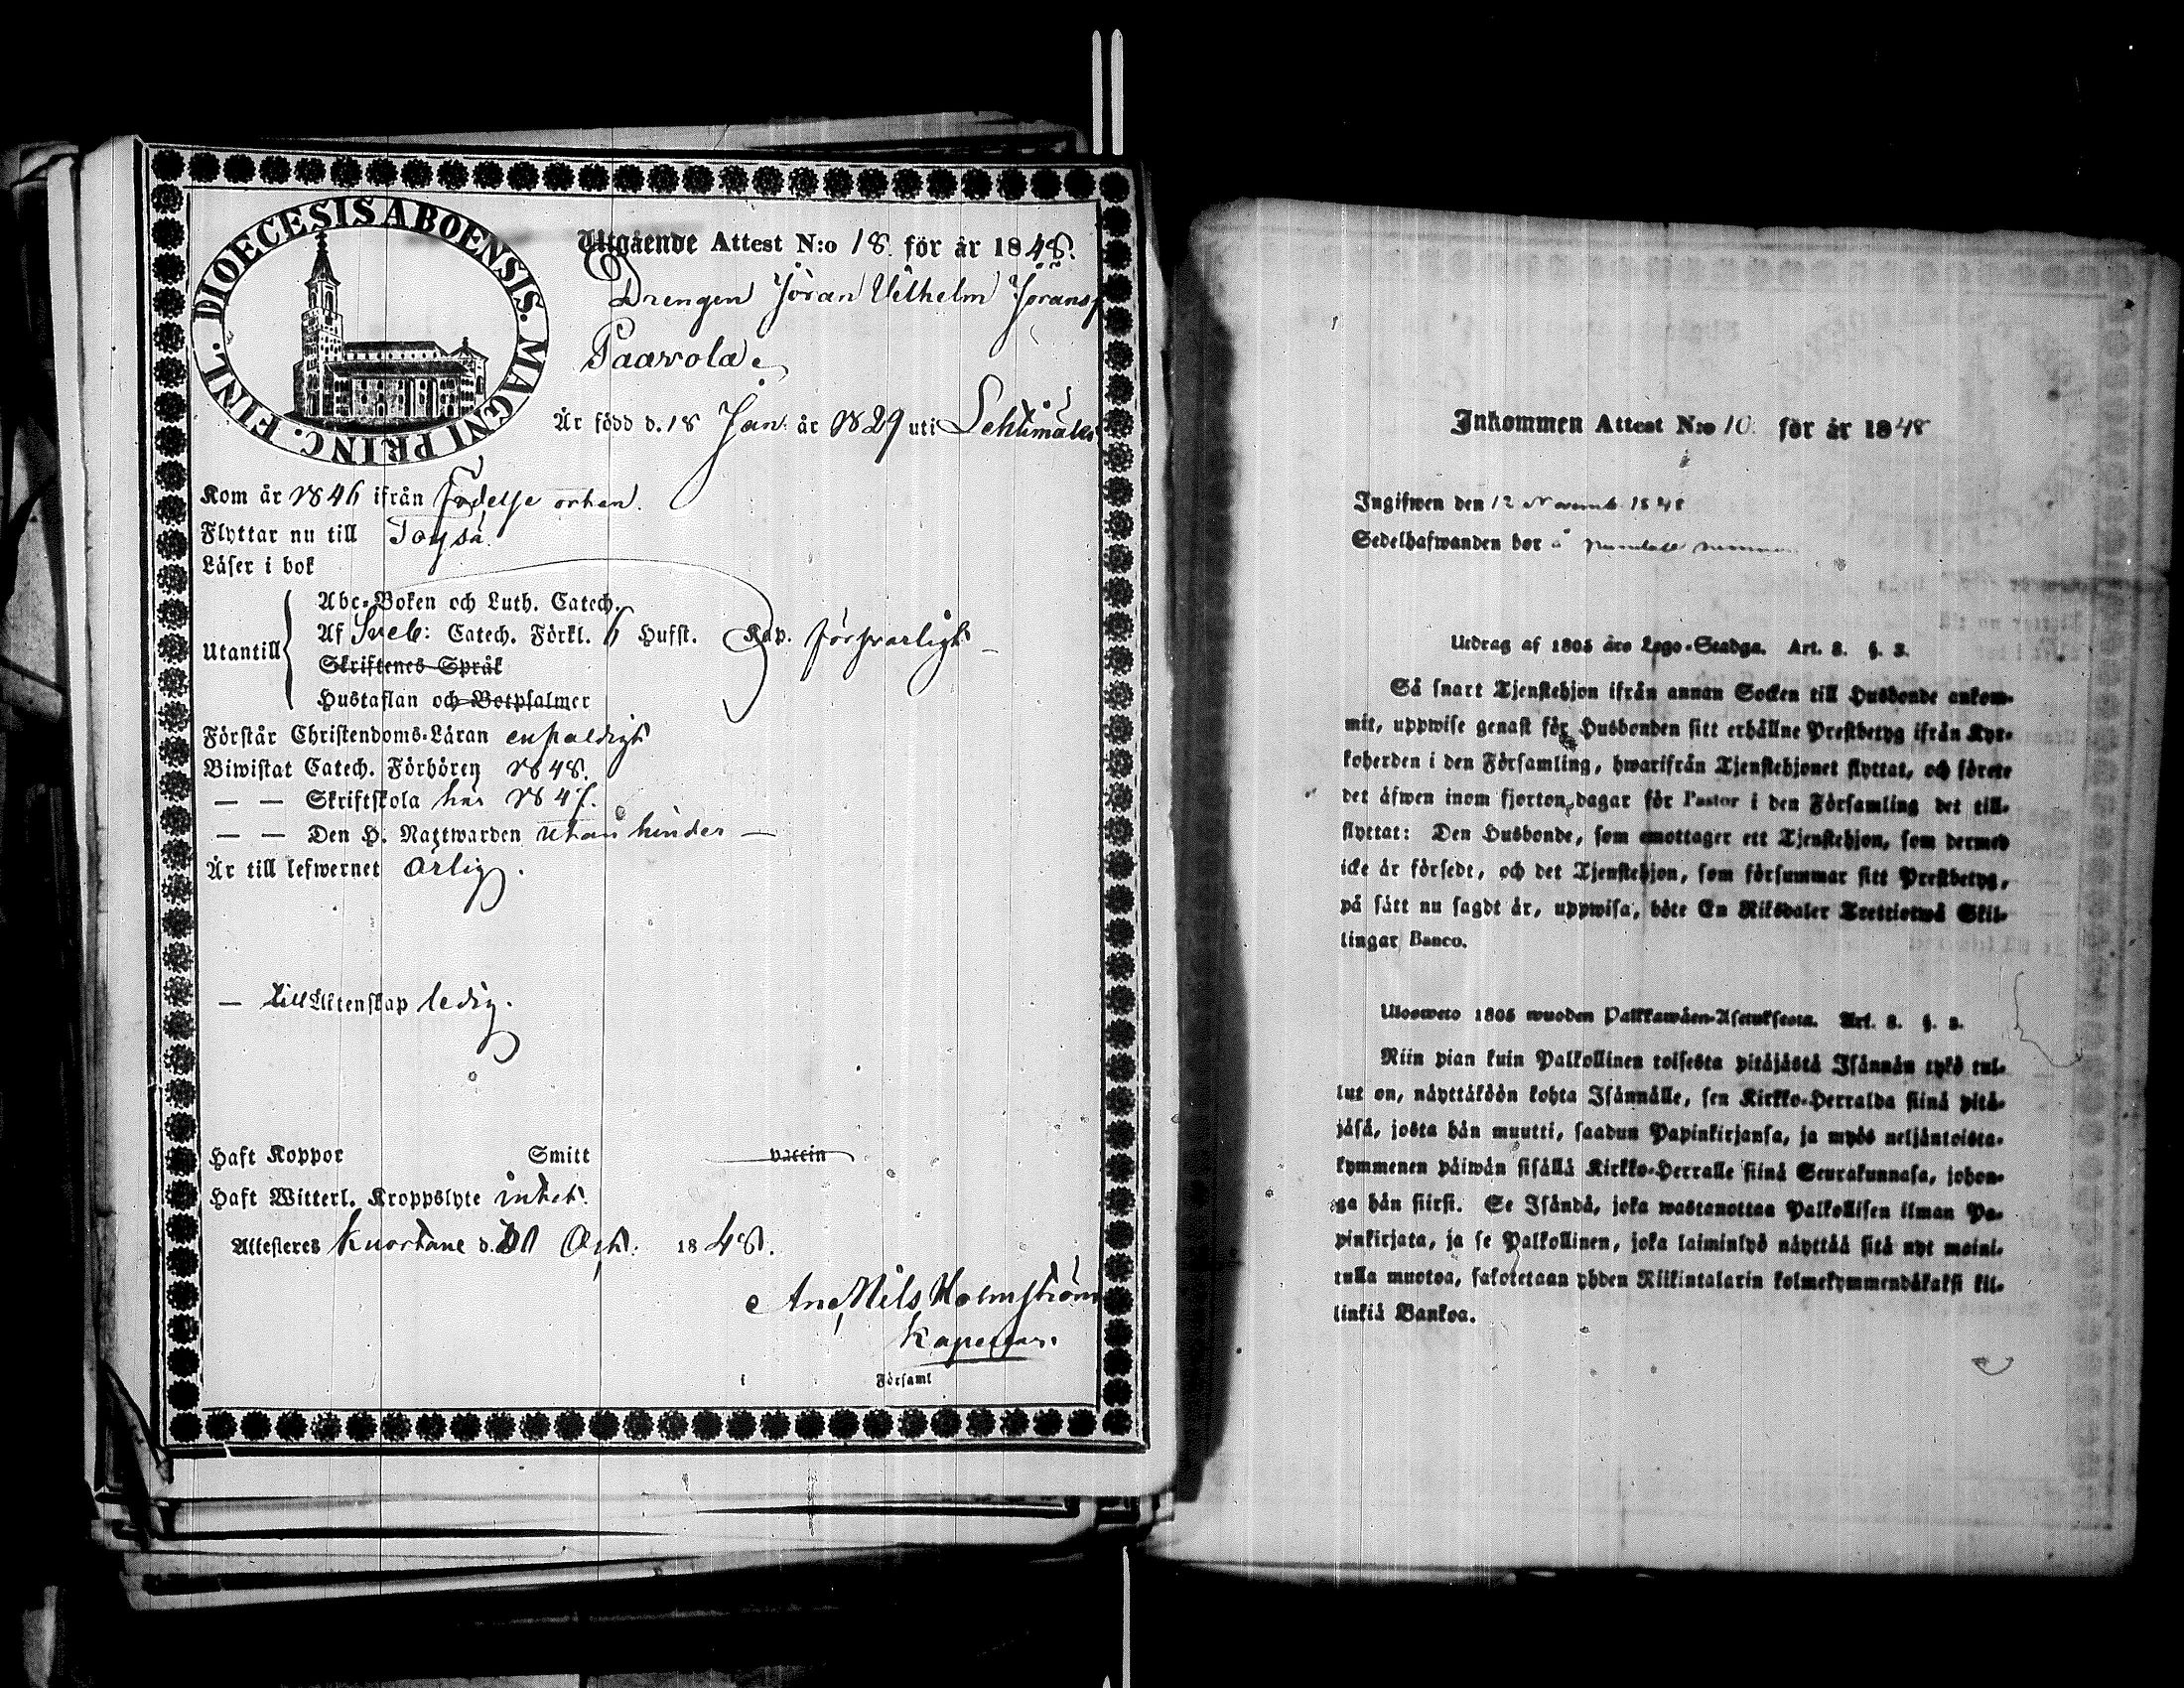 DIOECESIS ABOENSIS. MAGNI PRINC. FINL.
Utgående Attest N:o 18. för år 1848.
Drengen Jöran Vilhelm Jöranss
Paavola.
Är född d. 18 Jan. år 1829 uti Lehtimäki
Kom år 1846 ifrån Födelse orten.
Flyttar nu till Töysä.
Läser i bok
Utantill
Abc-Boken och Luth. Catech.
Af Sveb: Catech. Förkl. 6 Hufst. Kap. försvarligt
Skriftenes Språk
Hustaflan och Botpsalmer
Förstår Christendoms-Läran enfaldigt
Biwistat Catech. Förhören 1848.
— — Skriftskola här 1847.
— — Den H. Nattwarden utan hinder —
Är till lefwernet ärlig.
— till Äktenskap ledig.
Haft Koppor Smitt vaccin
Haft Witterl. Kroppslyte intet.
Attesteres Kuortane d. Oct. 1848.
And. Nils Holmström
Kapellan.
i Församl
Inkommen Attest N:o 10. för år 1848
Ingifwen den 12 Novemb. 1848
Sedelhafwanden bor å
Utdrag af 1805 års Lego-Stadga. Art. 8. §. 3.
Så snart Tjenstehjon ifrån annan Socken till Husbonde ankom-
mit, uppwise genast för Husbonden sitt erhållne Prestbetyg ifrån Kyr-
koherden i den Församling, hwarifrån Tjenstehjonet flyttat, och förete
det äfwen inom fjorton dagar för Pastor i den Församling det till-
flyttat: Den Husbonde, som emottager ett Tjenstehjon, som dermed
icke är försedt, och det Tjenstehjon, som försummar sitt Prestbetyg,
på sätt nu sagdt är, uppwisa, böte En Riksdaler Trettiotwå Skil-
lingar Banco.
Ulosweto 1805 wuoden Palkkawäen-Asetuksesta. Art. 8. §. 3.
Niin pian kuin Palkollinen toisesta pitäjästä Isännän tykö tul-
lut on, näyttäköön kohta Isännälle, sen Kirkko-Herralda siinä pitä-
jäsä, josta hän muutti, saadun Papinkirjansa, ja myös neljäntoista-
kymmenen päiwän sisällä Kirkko-Herralle siinä Seurakunnasa, johon-
ga hän siirsi. Se Isändä, joka wastanottaa Palkollisen ilman Pa-
pinkirjata, ja se Palkollinen, joka laiminlyö näyttää sitä nyt maini-
tulla muotoa, sakotetaan yhden Riikintalarin kolmekymmendäkaksi kil-
linkiä Bankoa.